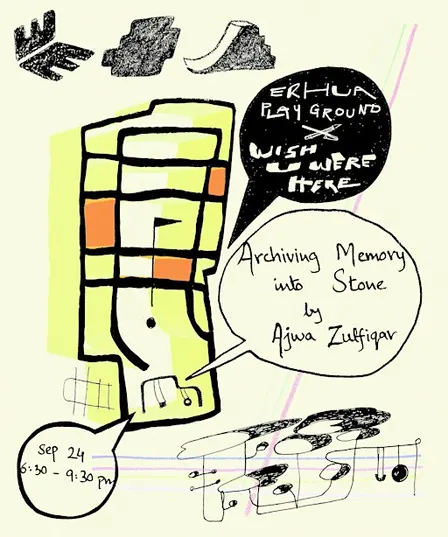 ERHUA
PLAYGROUND
X
WISH
U WERE
HERE
Archiving Memory
into Stone
by
Ajwa Zulfiqar
Sep 24
6:30 - 9:30 pm